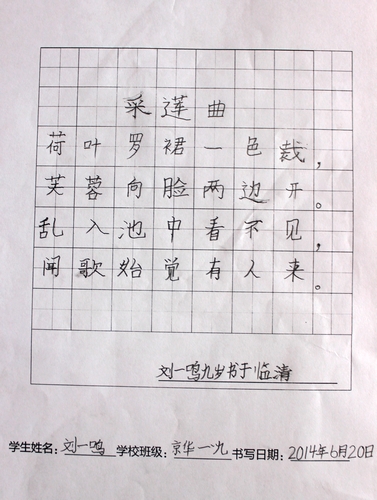 采莲曲
荷叶罗裙一色裁,
芙蓉向脸两边开。
乱入池中看不见,
闻歌始觉有人来。
刘一鸣九岁书于临清
学生姓名:刘一鸣 学校班级:京华一.九 书写日期:2014年6月20日